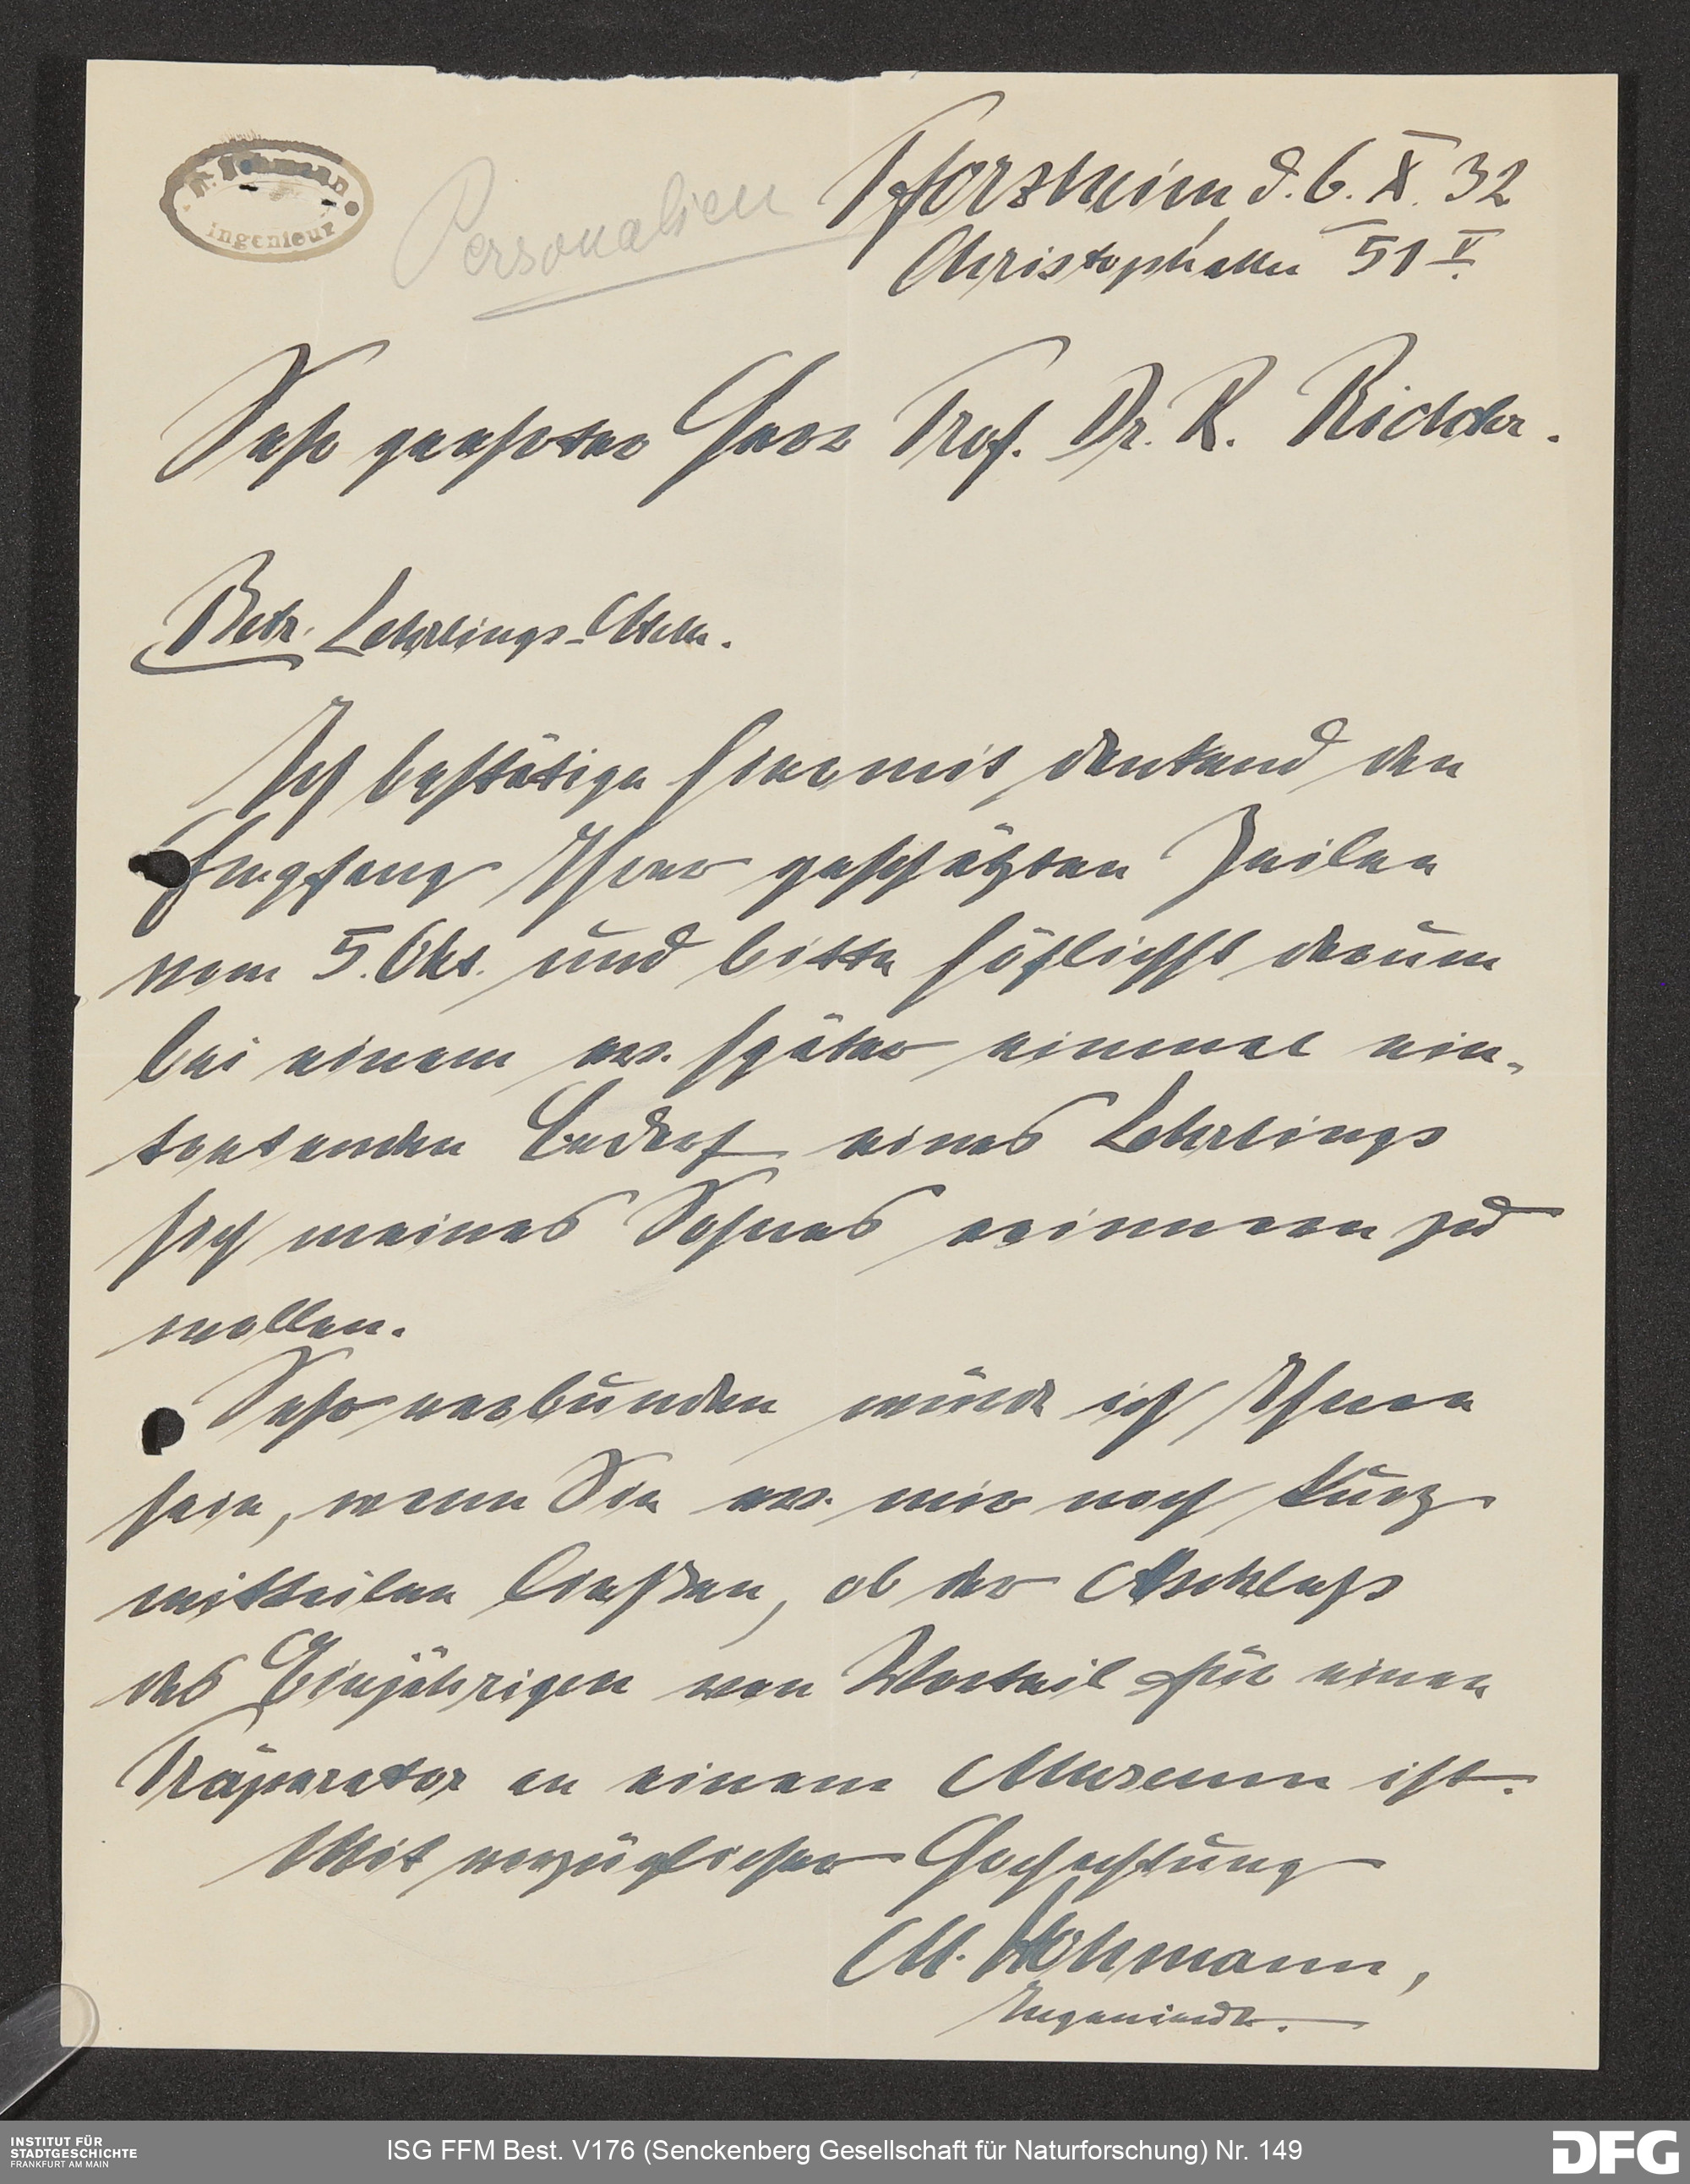 Ingenieur
Personalien
Pforzheim d. 6. X. 32
Christophallee 51 V.
Sehr geehrter Herr Prof. Dr. R. Richter.
Betr. Lehrlings-Stelle.
Ich bestätige hiermit dankend den
Empfang Ihrer geschätzten Zeilen
vom 5. Okt. und bitte höflichst darum
bei einem ev. später einmal ein-
tretenden Bedarf eines Lehrlings
sich meines Sohnes erinnern zu
wollen.
Sehr verbunden würde ich Ihnen
sein, wenn Sie ev. mir noch kurz
mitteilen ließen, ob der Abschluß
des Einjährigen von Vorteil für einen
Präparator an einem Museum ist.
Mit vorzüglicher Hochachtung
M. Hohmann,
Ingenieur.
INSTITUT FÜR
STADTGESCHICHTE
FRANKFURT AM MAIN
ISG FFM Best. V176 (Senckenberg Gesellschaft für Naturforschung) Nr. 149
DFG